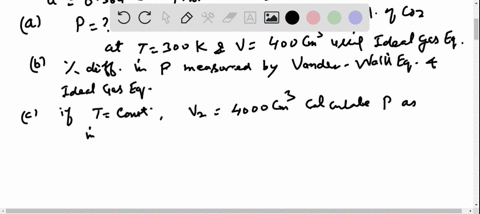 (a) P = ? of CO2
at T = 300 K & V = 400 Cm³ using Ideal Gas Eq.
(b) % diff. in P measured by Vander-Walls Eq. &
Ideal Gas Eq.
(c) if T = Const., V₂ = 4000 Cm³ Calculate P as
in